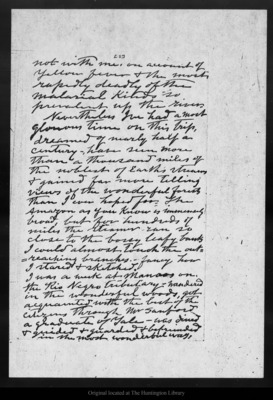 not with me on account of
yellow fever & the most
rapidly deadly of the
malarial kinds so
prevalent up the river
Nevertheless Ive had a most
glorious time on this trip,
dreamed of nearly half a
century - have seen more
than a thousand miles of
the noblest of Earth's streams
& gained far more telling
views of the wonderful forests
than I ever hoped for. The
Amazon as you know is immensely
broad, but for hundreds of
miles the steamer ran so
close to the bossy leafy banks
I could almost touch the out-
reaching branches - fancy how
I stared & sketched.
I was a week at Manaos on
the Rio Negro tributary - wandered
in the wonderful woods, got
acquainted with the best of the
citizens through Mr Sanford
a graduate of Yale - was dined
& guided & guarded & befriended
in the most wonderful way,
Original located at The Huntington Library